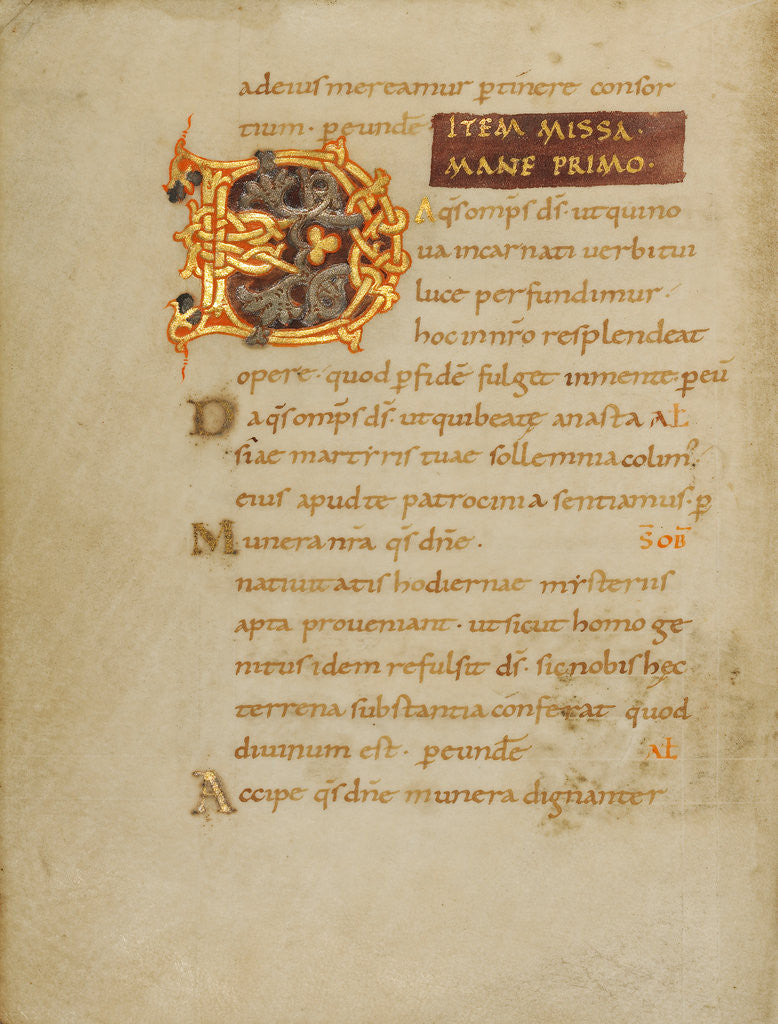 adeius mereamur ptinere consor
tium · p eundē
ITEM MISSA ·
MANE PRIMO ·
DA qs omps ds · ut qui no
ua incarnati uerbi tui
luce perfundimur ·
hoc in nro resplendeat
opere · quod p fidē fulget in mente · p eū
Da qs omps ds · ut qui beatę anasta AL
siae martyris tuae sollemnia colim
eius apud te patrocinia sentiamus · p
Munera nra qs dne · S OB
natiuitatis hodiernae mysteriis
apta proueniant · ut sicut homo ge
nitus idem refulsit ds · sic nobis hęc
terrena substantia conferat quod
diuinum est · p eundē AL
Accipe qs dne munera dignanter